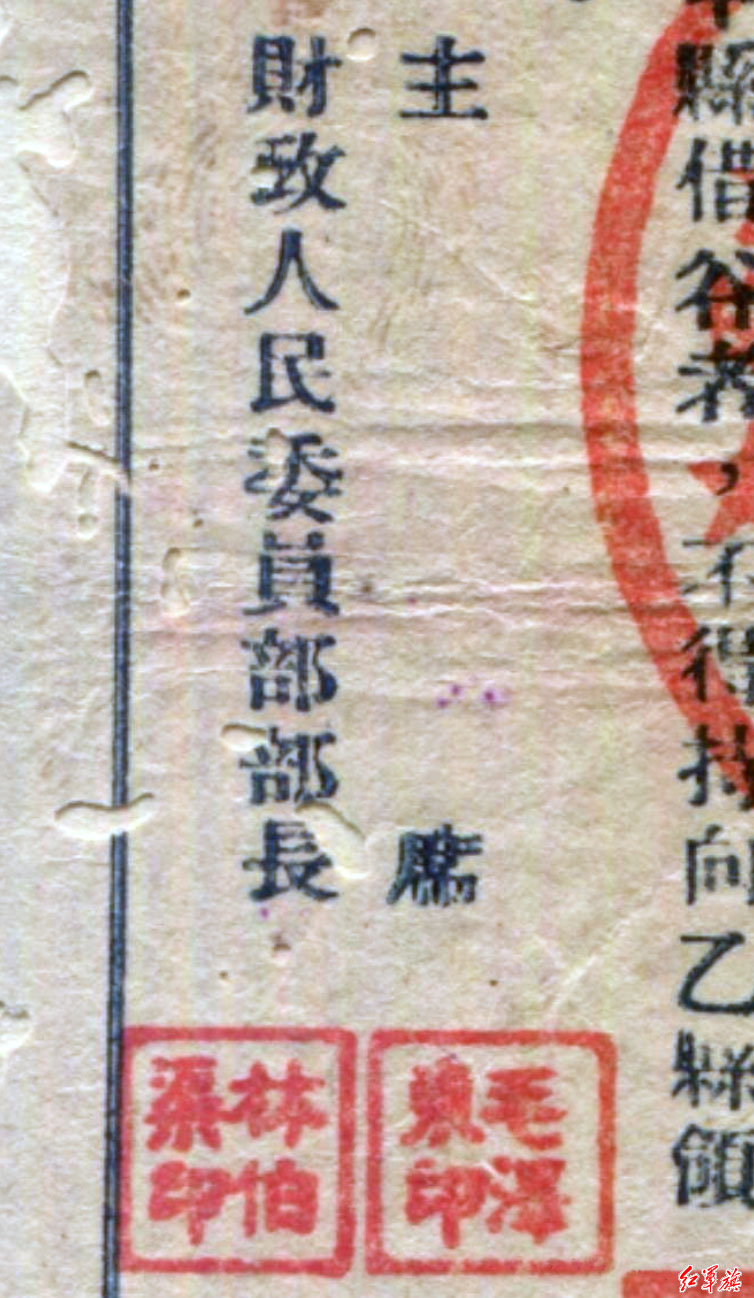 縣借谷者，不得持向乙縣領
主席
財政人民委員部部長
毛澤東印
林伯渠印
红军旗